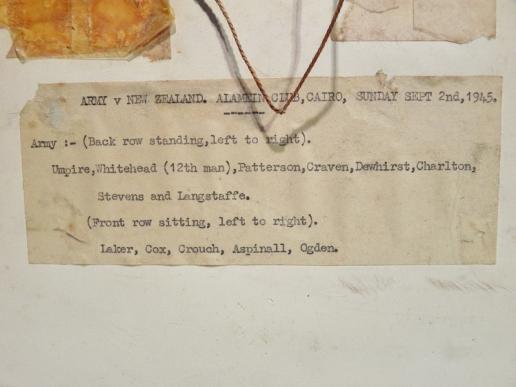 ARMY v NEW ZEALAND. ALAMEIN CLUB,CAIRO, SUNDAY SEPT 2nd,1945.
Army :- (Back row standing,left to right).
Umpire,Whitehead (12th man),Patterson,Craven,Dewhirst,Charlton,
Stevens and Langstaffe.
(Front row sitting, left to right).
Laker, Cox, Crouch, Aspinall, Ogden.